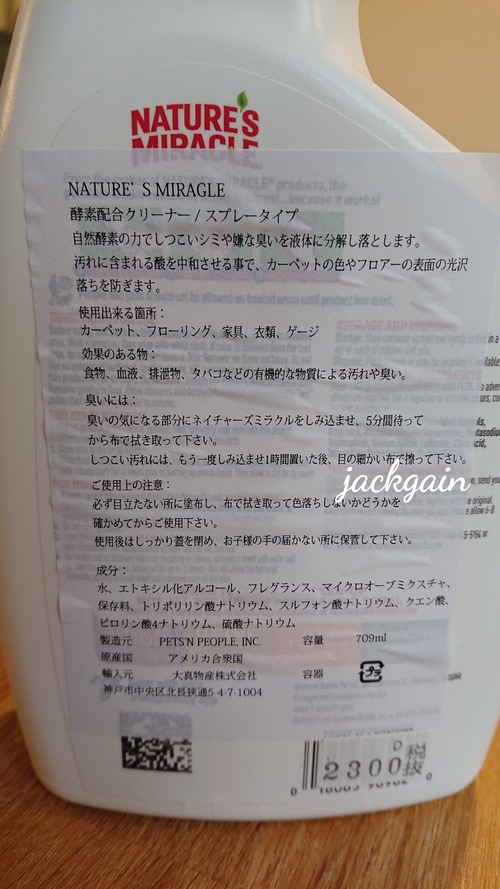 NATURE'S
MIRACLE
NATURE’S MIRAGLE
酵素配合クリーナー / スプレータイプ
自然酵素の力でしつこいシミや嫌な臭いを液体に分解し落とします。
汚れに含まれる酸を中和させる事で、カーペットの色やフロアーの表面の光沢
落ちを防ぎます。
使用出来る箇所：
カーペット、フローリング、家具、衣類、ゲージ
効果のある物：
食物、血液、排泄物、タバコなどの有機的な物質による汚れや臭い。
臭いには：
臭いの気になる部分にネイチャーズミラクルをしみ込ませ、5分間待って
から布で拭き取って下さい。
しつこい汚れには、もう一度しみ込ませ1時間置いた後、目の細かい布で擦って下さい。
jackgain
ご使用上の注意：
必ず目立たない所に塗布し、布で拭き取って色落ちしないかどうかを
確かめてからご使用下さい。
使用後はしっかり蓋を閉め、お子様の手の届かない所に保管して下さい。
成分：
水、エトキシル化アルコール、フレグランス、マイクロオーブミクスチャ、
保存料、トリポリリン酸ナトリウム、スルフォン酸ナトリウム、クエン酸、
ピロリン酸4ナトリウム、硫酸ナトリウム
製造元 PETS'N PEOPLE, INC. 容量 709ml
原産国 アメリカ合衆国
輸入元 大真物産株式会社 容器 プラ
神戸市中央区北長狭通5-4-7-1004
D
2300 税抜